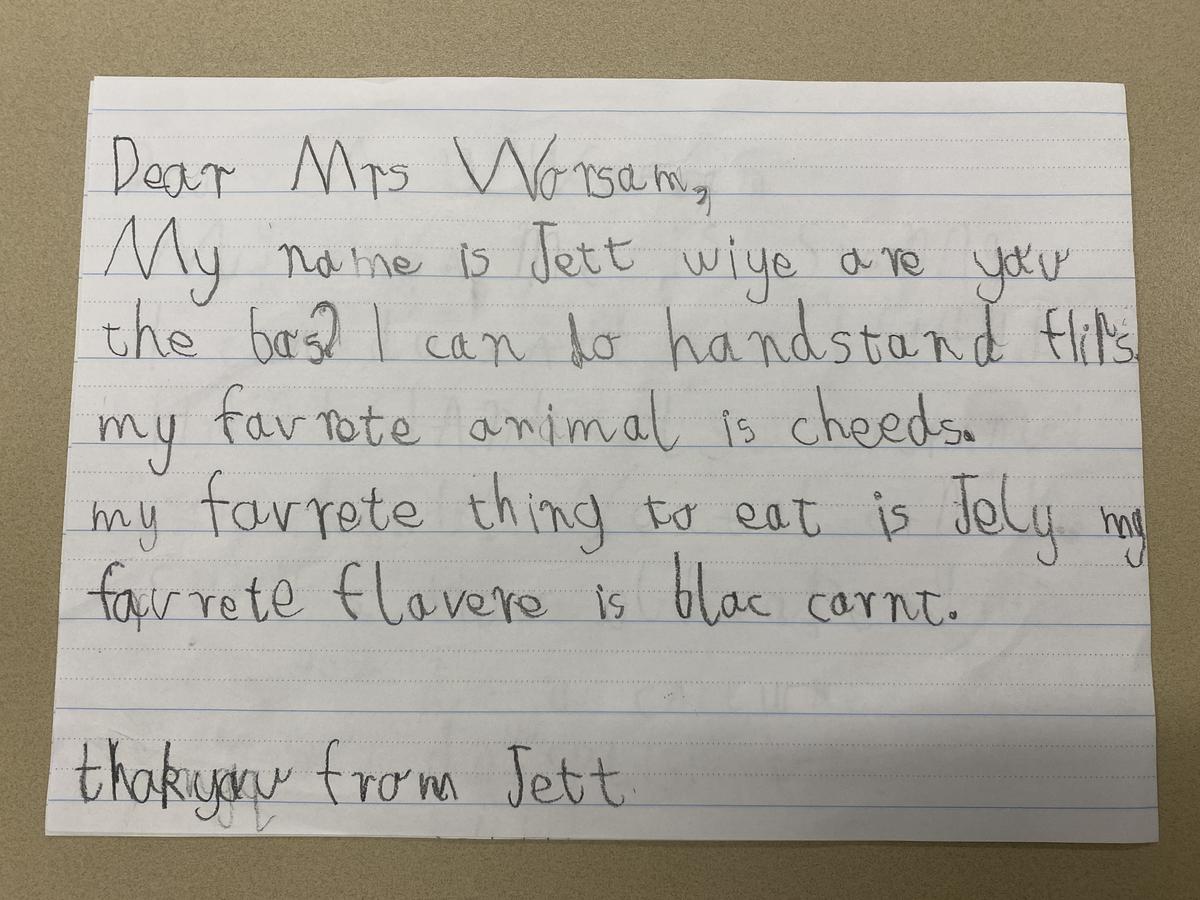 Dear Mrs Worsam,
My name is Jett wiye are you
the bos? I can do handstand flips.
my favrete animal is cheeds.
my favrete thing to eat is Jely my
favrete flavere is blac carnt.
thakyou from Jett